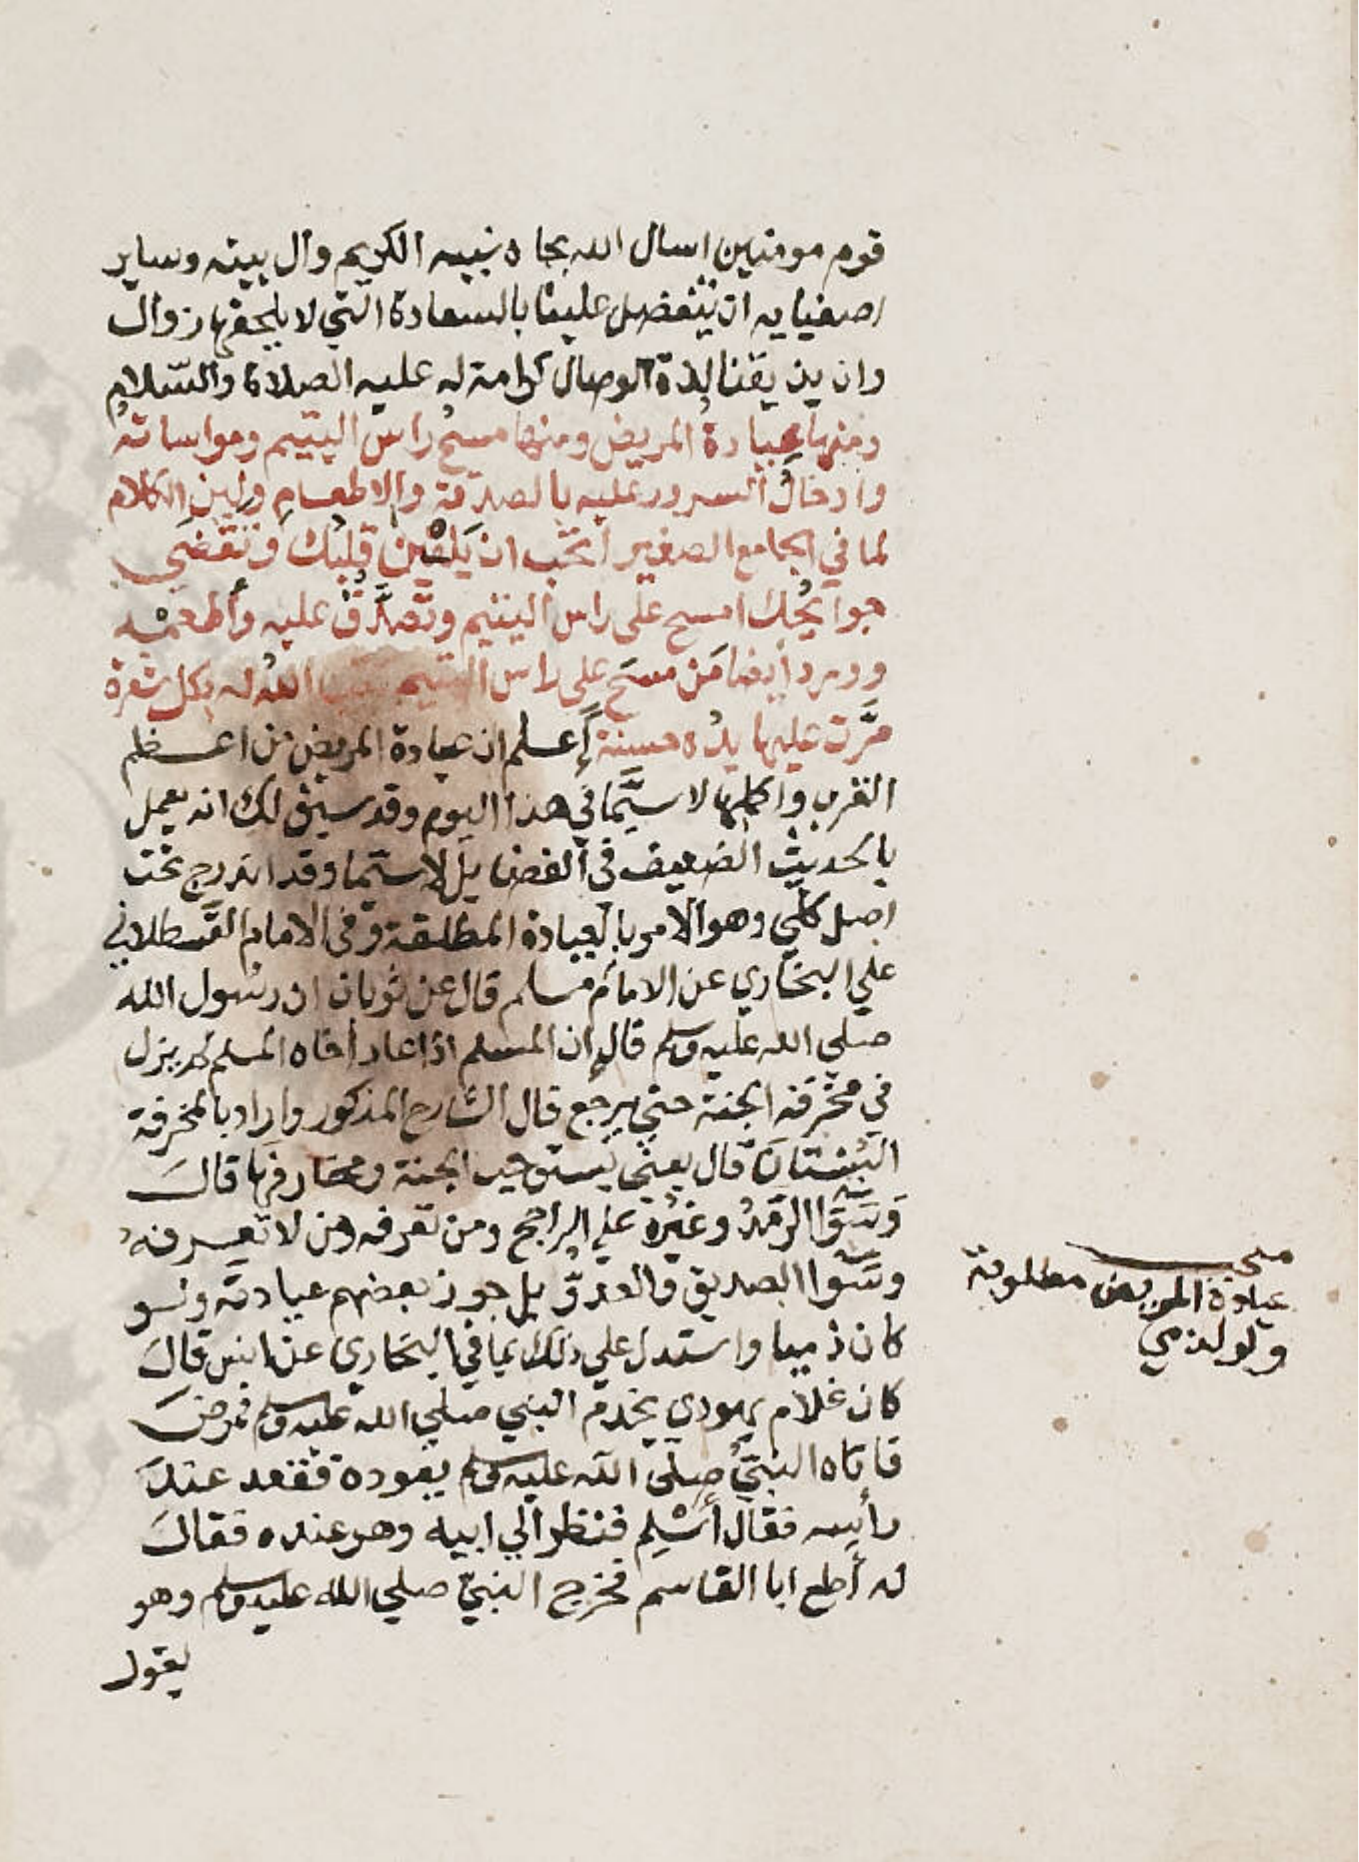 قوم مومنين اسال الله بجاه نبيه الكريم وال بيته وساير
اصفيايه ان يتفضل علينا بالسعادة التي لا يلحقها زوال
وان يذيقنا لذة الوصال كرامة له عليه الصلاة والسلام
ومنها عيادة المريض ومنها مسح راس اليتيم ومواساته
وادخال السرور عليه بالصدقة والاطعام ولين الكلام
لما في الجامع الصغير أتحب ان يلين قلبك وتنقضي
حوايجك امسح على راس اليتيم وتصدق عليه وأطعمه
وورد أيضا من مسح على راس اليتيم الله له بكل شعرة
مرت عليها يده حسنة إعلم ان عيادة المريض من اعظم
القرب واكملها لا سيما في هذا اليوم وقد سبق لك انه يعمل
بالحديث الضعيف في الفضايل لا سيما وقد اندرج تحت
اصل كلي وهو الامر بالعيادة المطلقة وفي الامام القسطلاني
علي البخاري عن الامام مسلم قال عن ثوبان ان رسول الله
صلي الله عليه وسلم قال ان المسلم اذا عاد أخاه المسلم لم يزل
في مخرفة الجنة حتي يرجع قال الشارح المذكور واراد بالمخرفة
البستان قال يعني يستوجب الجنة ومخارفها قال
وسوا الرمد وغيره علي الراجح ومن تعرفه ومن لا تعرفه
وسوا الصديق والعدو بل جوز بعضهم عيادته ولو
كان ذميا واستدل علي ذلك بما في البخاري عن انس قال
كان غلام يهودي يخدم النبي صلي الله عليه وسلم فمرض
فاتاه النبي صلى الله عليه وسلم يعوده فقعد عند
رأسه فقال أسلم فنظر الي ابيه وهو عنده فقال
له أطع ابا القاسم فخرج النبي صلي الله عليه وسلم وهو
يقول
عيادة المريض مطلوبة
ولو لذمي